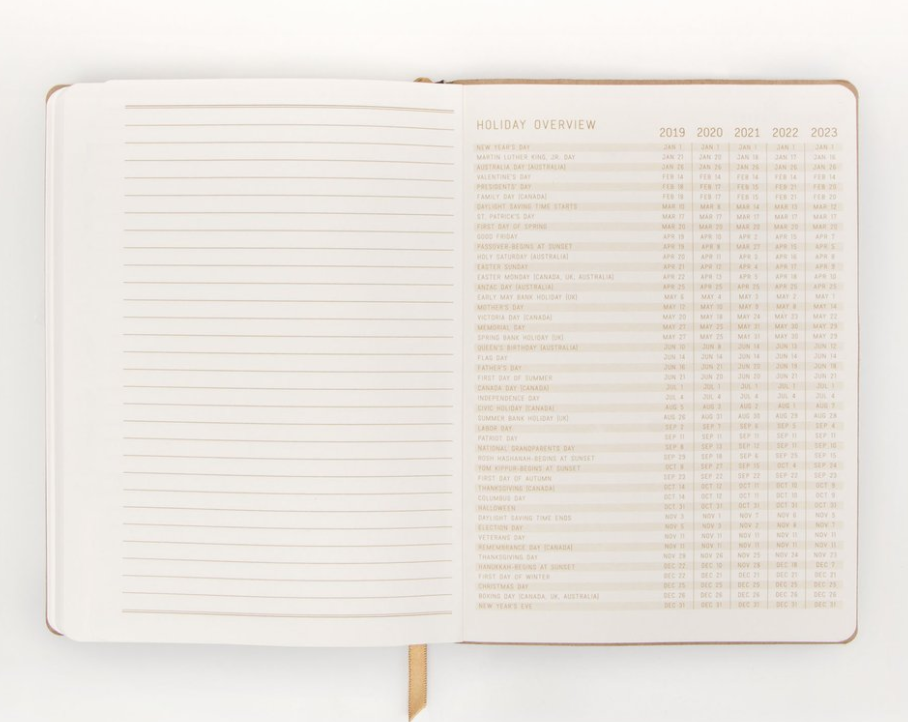 HOLIDAY OVERVIEW 2019 2020 2021 2022 2023
NEW YEAR'S DAY JAN 1 JAN 1 JAN 1 JAN 1 JAN 1
MARTIN LUTHER KING, JR. DAY JAN 21 JAN 20 JAN 18 JAN 17 JAN 16
AUSTRALIA DAY (AUSTRALIA) JAN 26 JAN 26 JAN 26 JAN 26
VALENTINE'S DAY FEB 14 FEB 14 FEB 14 FEB 14 FEB 14
PRESIDENTS' DAY FEB 18 FEB 17 FEB 15 FEB 21 FEB 20
FAMILY DAY (CANADA) FEB 18 FEB 17 FEB 15 FEB 21 FEB 20
DAYLIGHT SAVING TIME STARTS MAR 10 MAR 8 MAR 14 MAR 13 MAR 12
ST. PATRICK'S DAY MAR 17 MAR 17 MAR 17 MAR 17 MAR 17
FIRST DAY OF SPRING MAR 20 MAR 20 MAR 20 MAR 20
GOOD FRIDAY APR 19 APR 10 APR 2 APR 15 APR 7
PASSOVER-BEGINS AT SUNSET APR 19 APR 8 MAR 27 APR 15 APR 5
HOLY SATURDAY (AUSTRALIA) APR 20 APR 11 APR 16 APR 8
EASTER SUNDAY APR 21 APR 12 APR 4 APR 17 APR 9
EASTER MONDAY (CANADA, UK, AUSTRALIA) APR 22 APR 13 APR 18 APR 10
ANZAC DAY (AUSTRALIA) APR 25 APR 25 APR 25 APR 25 APR 25
EARLY MAY BANK HOLIDAY (UK) MAY 6 MAY 4 MAY 3 MAY 2 MAY 1
MOTHER'S DAY MAY 12 MAY 10 MAY 9 MAY 8 MAY 14
VICTORIA DAY (CANADA) MAY 20 MAY 18 MAY 23 MAY 22
MEMORIAL DAY MAY 27 MAY 25 MAY 31 MAY 30 MAY 29
SPRING BANK HOLIDAY (UK) MAY 27 MAY 25 MAY 31 MAY 30 MAY 29
QUEEN'S BIRTHDAY (AUSTRALIA) JUN 10 JUN 8 JUN 14 JUN 13 JUN 12
FLAG DAY JUN 14 JUN 14 JUN 14 JUN 14 JUN 14
FATHER'S DAY JUN 16 JUN 21 JUN 20 JUN 19 JUN 18
FIRST DAY OF SUMMER JUN 21 JUN 20 JUN 20 JUN 21 JUN 21
CANADA DAY (CANADA) JUL 1 JUL 1 JUL 1 JUL 1 JUL 1
INDEPENDENCE DAY JUL 4 JUL 4 JUL 4 JUL 4 JUL 4
CIVIC HOLIDAY (CANADA) AUG 5 AUG 3 AUG 2 AUG 1 AUG 7
SUMMER BANK HOLIDAY (UK) AUG 26 AUG 31 AUG 30 AUG 29 AUG 28
LABOR DAY SEP 2 SEP 7 SEP 6 SEP 5 SEP 4
PATRIOT DAY SEP 11 SEP 11 SEP 11 SEP 11 SEP 11
NATIONAL GRANDPARENTS DAY SEP 8 SEP 13 SEP 12 SEP 11 SEP 10
ROSH HASHANAH-BEGINS AT SUNSET SEP 29 SEP 18 SEP 6 SEP 25 SEP 15
YOM KIPPUR-BEGINS AT SUNSET OCT 8 SEP 27 SEP 15 OCT 4 SEP 24
FIRST DAY OF AUTUMN SEP 23 SEP 22 SEP 22 SEP 22 SEP 23
THANKSGIVING (CANADA) OCT 14 OCT 12 OCT 11 OCT 10 OCT 9
COLUMBUS DAY OCT 14 OCT 12 OCT 11 OCT 10 OCT 9
HALLOWEEN OCT 31 OCT 31 OCT 31 OCT 31 OCT 31
DAYLIGHT SAVING TIME ENDS NOV 3 NOV 1 NOV 7 NOV 6 NOV 5
ELECTION DAY NOV 5 NOV 3 NOV 2 NOV 8 NOV 7
VETERANS DAY NOV 11 NOV 11 NOV 11 NOV 11 NOV 11
REMEMBRANCE DAY (CANADA) NOV 11 NOV 11 NOV 11 NOV 11 NOV 11
THANKSGIVING DAY NOV 28 NOV 26 NOV 25 NOV 24 NOV 23
HANUKKAH-BEGINS AT SUNSET DEC 22 DEC 10 NOV 28 DEC 18 DEC 7
FIRST DAY OF WINTER DEC 21 DEC 21 DEC 21 DEC 21
CHRISTMAS DAY DEC 25 DEC 25 DEC 25 DEC 25 DEC 25
BOXING DAY (CANADA, UK, AUSTRALIA) DEC 26 DEC 26 DEC 26 DEC 26 DEC 26
NEW YEAR'S EVE DEC 31 DEC 31 DEC 31 DEC 31 DEC 31